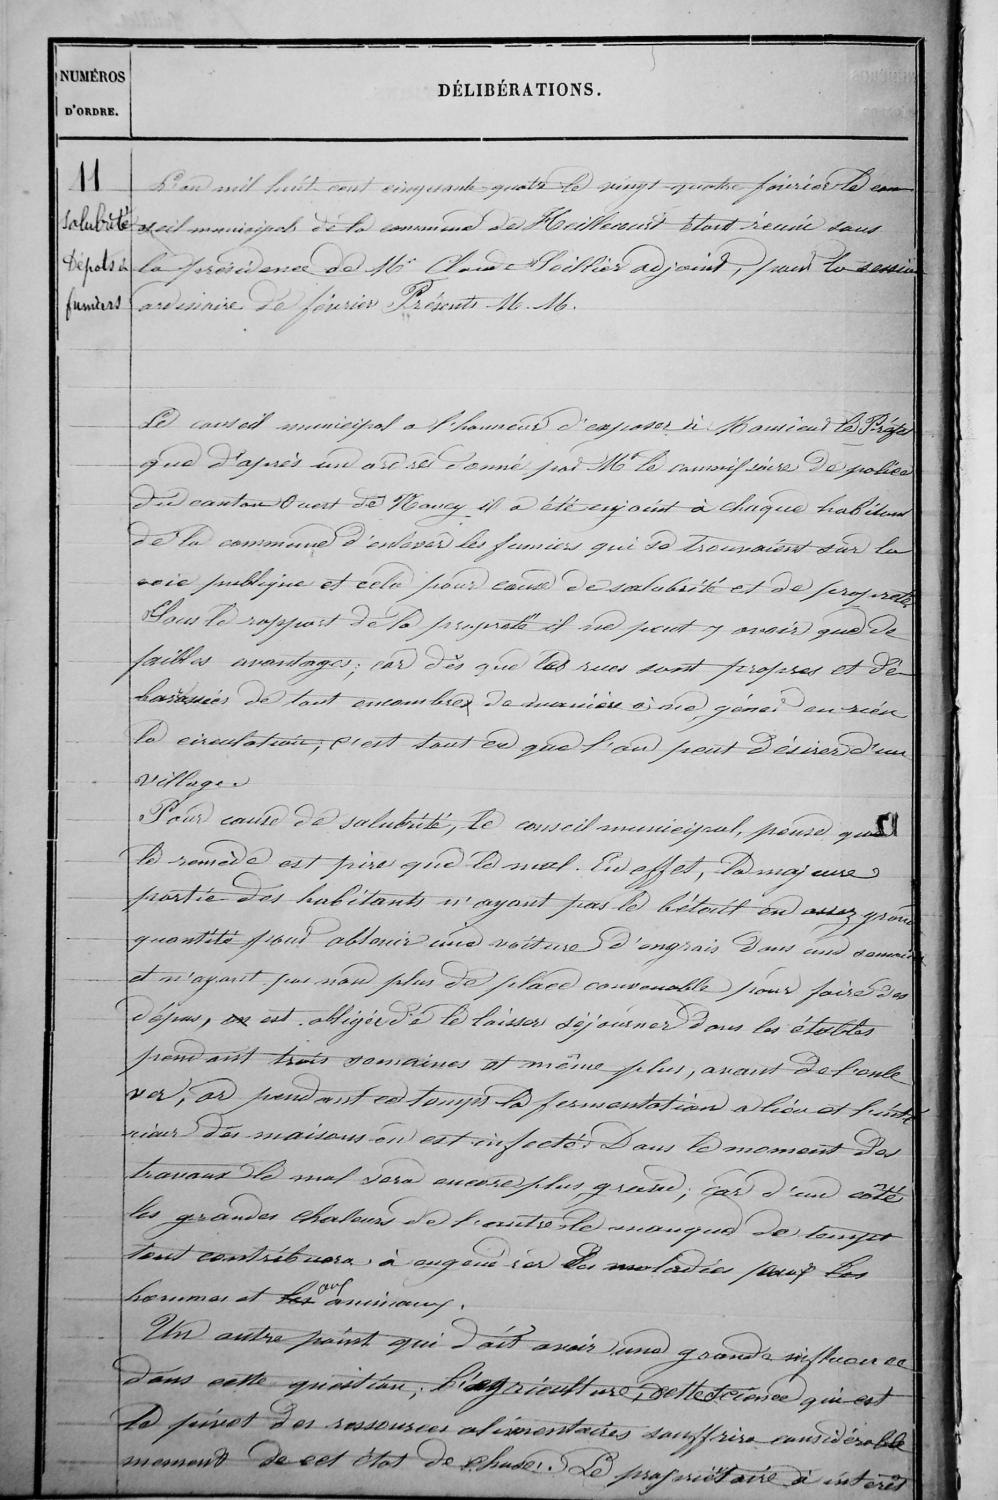 NUMÉROS
D'ORDRE.
DÉLIBÉRATIONS.
11
Salubrité
Dépôts de
fumiers
L'an mil huit cent cinquante-quatre le vingt-quatre février le con
seil municipal de la commune de Heillecourt étant réuni sous
la présidence de Mr Claude adjoint, pour la session
ordinaire de février Présents M. M.
Le conseil municipal a l'honneur d'exposer à Monsieur le Préfet
que d'après un ordre donné par Mr le commissaire de police
du canton Ouest de Nancy il a été enjoint à chaque habitant
de la commune d'enlever les fumiers qui se trouvaient sur la
voie publique et cela pour cause de salubrité et de propreté.
Sous le rapport de la propreté il ne peut y avoir que de
faibles avantages; car dès que les rues sont propres et dé-
barassées de tout encombre de manière à ne gêner en rien
la circulation, c'est tout ce que l'on peut désirer d'un
village.
Pour cause de salubrité, le conseil municipal, pense que
12
le remède est pire que le mal. En effet, la majeure
partie des habitants n'ayant pas le bétail en assez grande
quantité pour obtenir une voiture d'engrais dans une semaine
et n'ayant pas non plus de place convenable pour faire des
dépôs, est obligée de le laisser séjourner dans les étables
pendant trois semaines et même plus, avant de l'enle
ver, or pendant ce temps la fermentation a lieu et l'inté
rieur des maisons en est infecté. Dans le moment des
travaux le mal sera encore plus grand; car d'un côté
les grandes chaleurs de l'autre le manque de temps
tout contribuera à engendrer des maladies les
hommes et aux animaux.
Un autre point qui doit avoir une grande influence
dans cette question, l'agriculture, cette science qui est
le pivot des ressources alimentaires souffrira considérable
ment de cet état de chose. Le propriétaire a intérêt